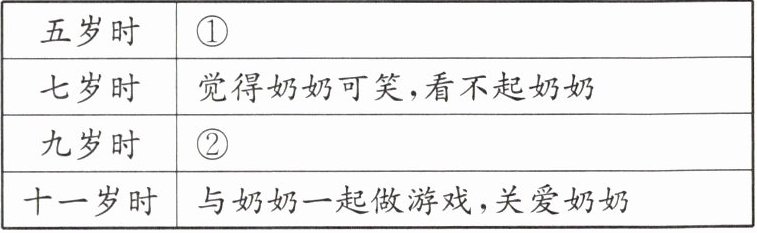 五岁时 ①
七岁时 觉得奶奶可笑,看不起奶奶
九岁时 ②
十一岁时 与奶奶一起做游戏,关爱奶奶